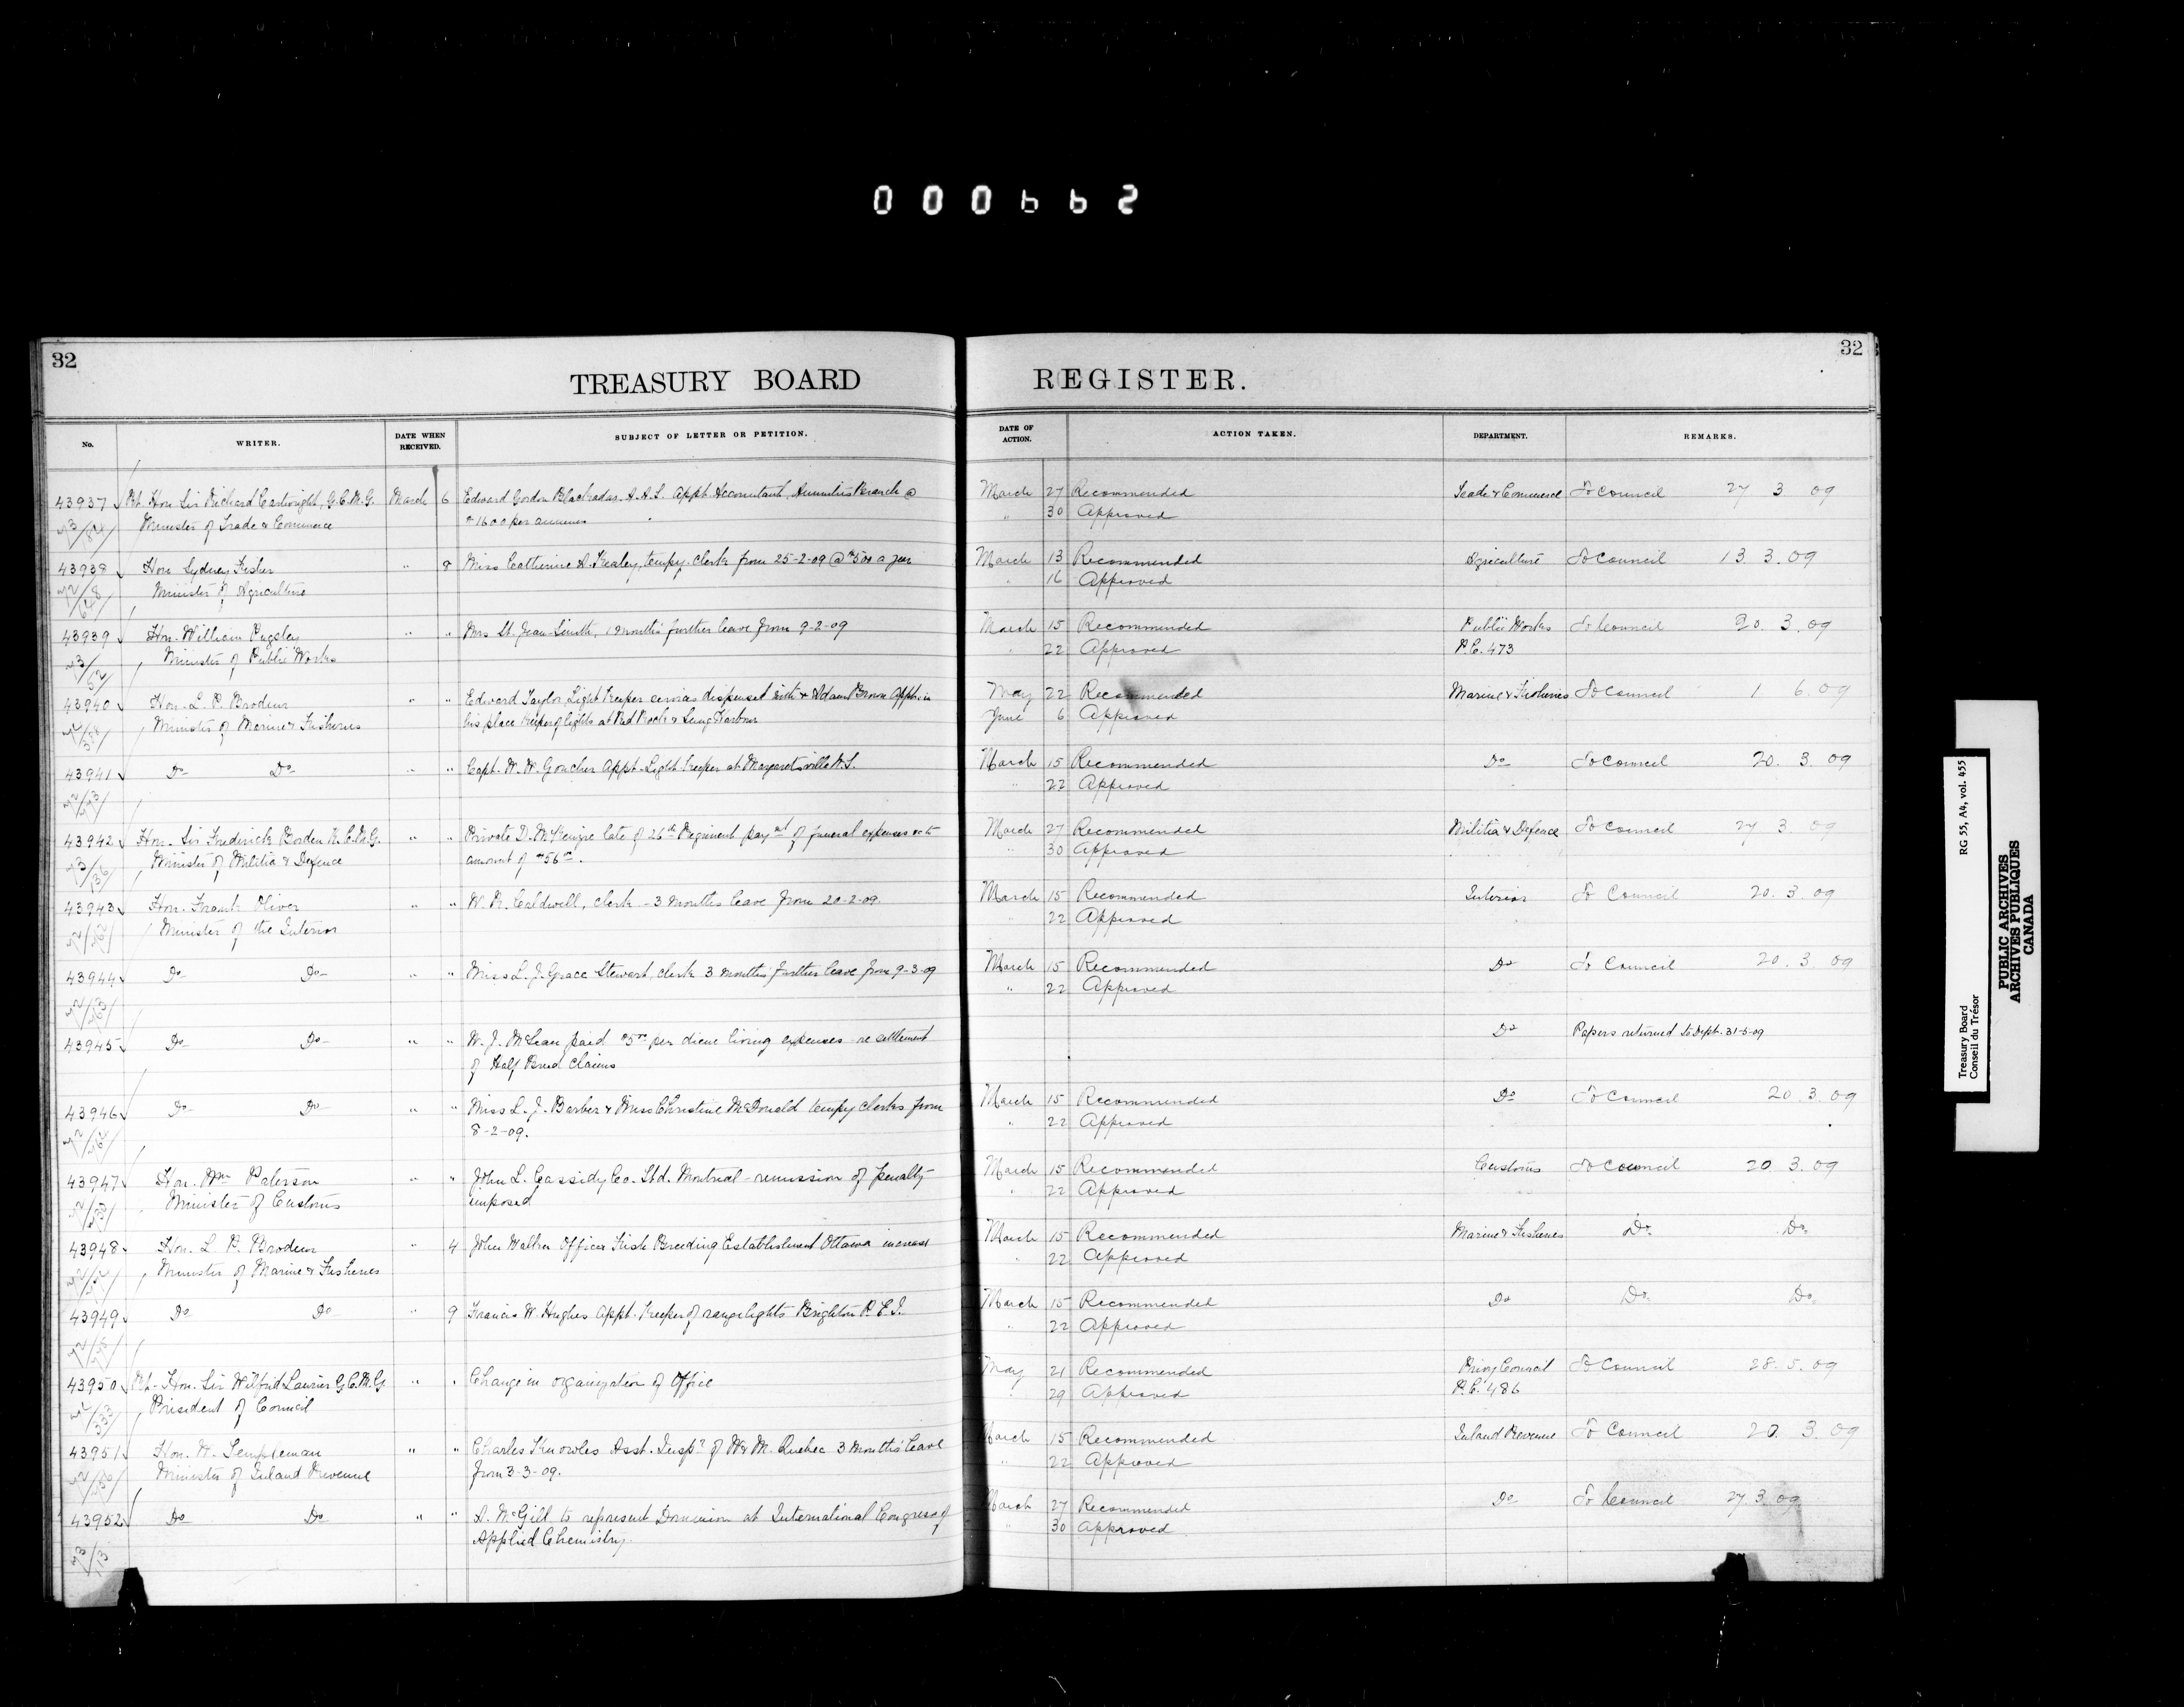 000662
32
TREASURY BOARD REGISTER.
32
No. WRITER. DATE WHEN RECEIVED. SUBJECT OF LETTER OR PETITION. DATE OF ACTION. ACTION TAKEN. DEPARTMENT. REMARKS.
43937 Rt. Hon Sir Richard Cartwright, G.C.M.G. March 6 Edward Gordon Blackadar. A.A.S. Appt. Accountant, Annuities Branch @ March 27 Recommended Trade & Commerce To Council 27 3 09
Minister of Trade & Commerce $1600 per annum " 30 Approved
43938 Hon Sydney Fisher " 9 Miss Catherine A. Healey, tempy. clerk from 25-2-09 @ $500 a year March 13 Recommended Agriculture To Council 13. 3. 09
Minister of Agriculture " 16 Approved
43939 Hon. William Pugsley " " Mrs St. Jean-Smith, 1 month's further leave from 9-2-09 March 15 Recommended Public Works To Council 20. 3. 09
23/52 Minister of Public Works " 22 Approved P.C. 473
43940 Hon. L. P. Brodeur " " Edward Taylor Light Keeper services dispensed with & Adam Brown Apptd in May 22 Recommended Marine & Fisheries To Council 1 6. 09
Minister of Marine & Fisheries his place keeper of lights at Red Rock & Lung Harbour June 6 Approved
43941 Do Do " " Capt. W. W. Goucher Appt. Light Keeper at Margaretsville N.S. March 15 Recommended Do To Council 20. 3. 09
" 22 Approved
43942 Hon. Sir Frederick Borden K.C.M.G. " " Private D. McKenzie late of 26th Regiment paymt of funeral expenses &c to March 27 Recommended Militia & Defence To Council 27 3 09
Minister of Militia & Defence amount of $56 " 30 Approved
43943 Hon. Frank Oliver " " W. R. Caldwell, clerk - 3 months leave from 20-2-09. March 15 Recommended Interior To Council 20. 3. 09
Minister of the Interior " 22 Approved
43944 Do Do " " Miss L. J. Grace Stewart, clerk 3 months' further leave from 9-3-09 March 15 Recommended Do To Council 20. 3 09
" 22 Approved
43945 Do Do " " W. J. McLean paid $5.00 per diem living expenses re settlement Do Papers returned to Dept. 31-5-09
of Half Breed Claims
43946 Do Do " " Miss L. J. Barber & Miss Christine McDonald tempy clerks from March 15 Recommended Do To Council 20. 3. 09
8-2-09. " 22 Approved
43947 Hon. Wm Paterson " " John L. Cassidy Co. Ltd. Montreal - remission of penalty March 15 Recommended Customs To Council 20. 3. 09
Minister of Customs imposed " 22 Approved
43948 Hon. L. P. Brodeur " 4 John Walker Officer Fish Breeding Establishment Ottawa increase March 15 Recommended Marine & Fisheries Do. Do.
Minister of Marine & Fisheries " 22 Approved
43949 Do Do " 9 Francis W. Hughes Appt. Keeper of range lights Brighton P.E.I. March 15 Recommended Do Do. Do.
" 22 Approved
43950 Rt. Hon. Sir Wilfrid Laurier G.C.M.G " " Change in organization of Office May 21 Recommended Privy Council To Council 28. 5. 09
President of Council " 29 Approved P.C. 486
43951 Hon. W. Templeman " " Charles Knowles Asst. Inspr of W & M. Quebec 3 months' leave March 15 Recommended Inland Revenue To Council 20. 3. 09
Minister of Inland Revenue from 3-3-09. " 22 Approved
43952 Do Do " " A. McGill to represent Dominion at International Congress of March 27 Recommended Do To Council 27. 3. 09
Applied Chemistry. " 30 Approved
Treasury Board RG 55, A4, vol. 455
Conseil du Trésor
PUBLIC ARCHIVES
ARCHIVES PUBLIQUES
CANADA